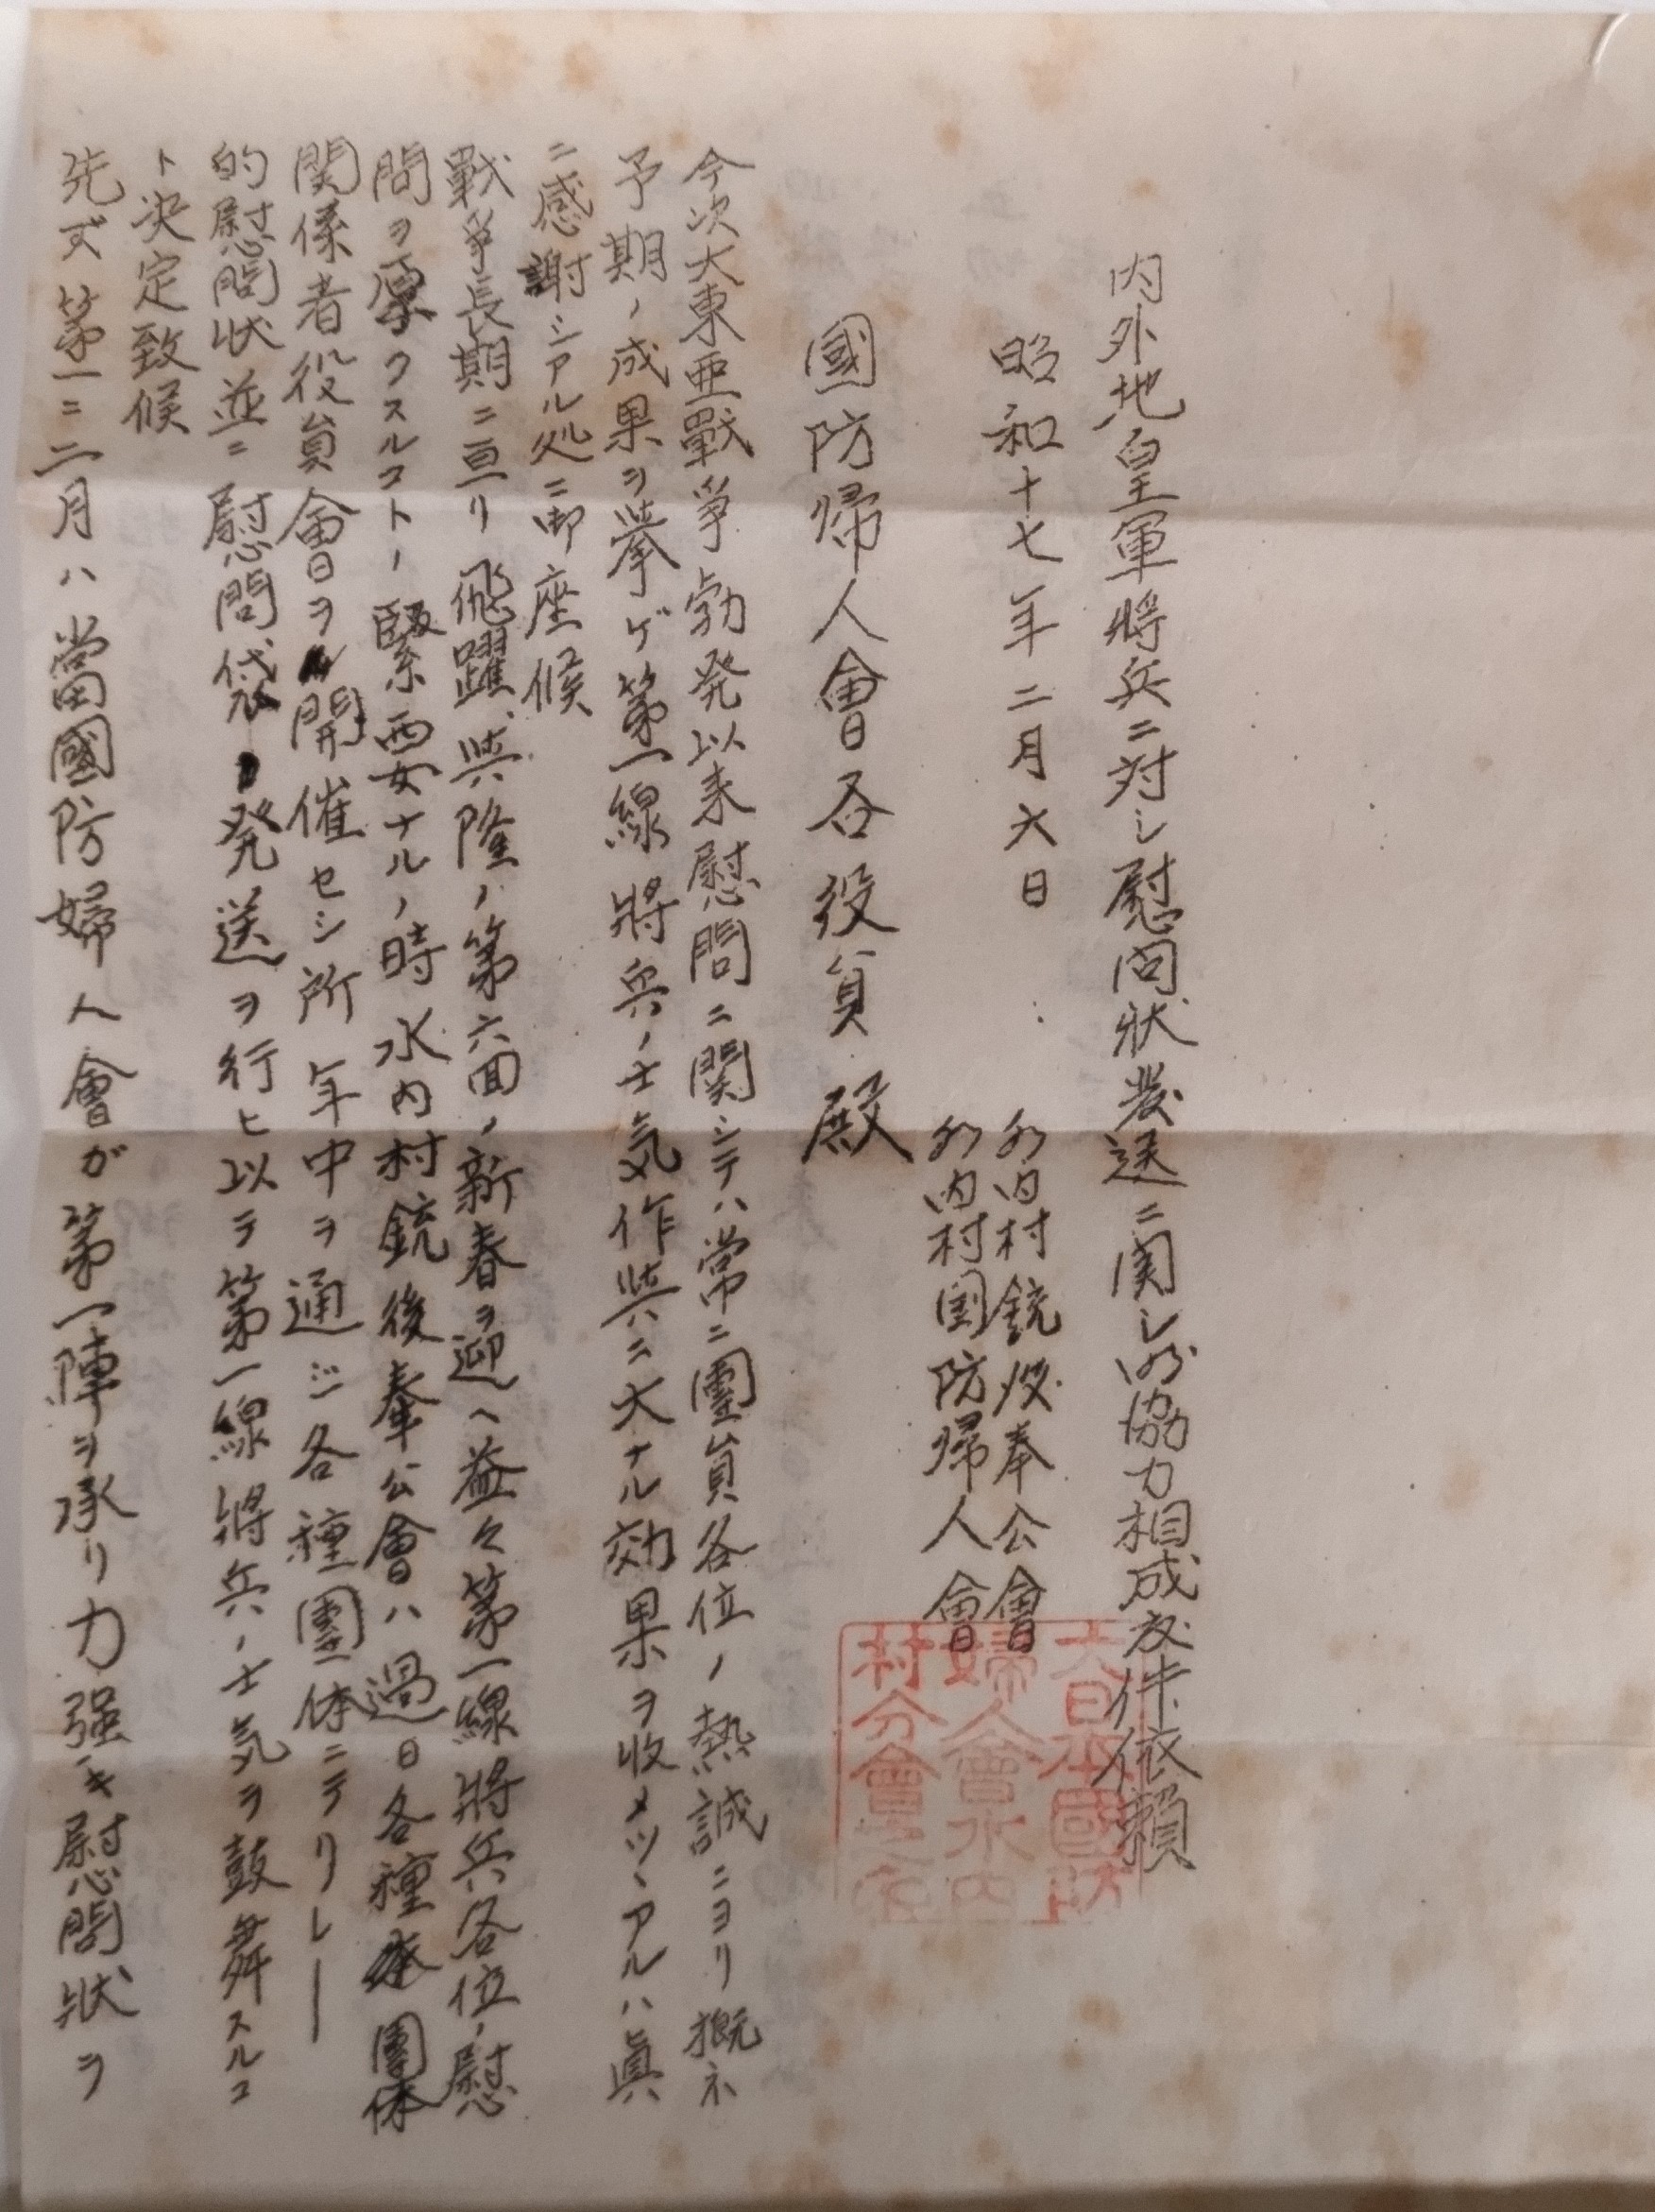 内外地皇軍將兵ニ対シ慰問狀発送ニ関シ御協力相成度件依頼
昭和十七年二月六日
水内村銃後奉公會
水内村国防帰人會
大日本國防
婦人會水内
村分會之
國防帰人會各役員殿
今次大東亜戰爭勃発以来慰問ニ関シテハ常ニ團員各位ノ熱誠ニヨリ概ネ
予期ノ成果ヲ挙ゲ第一線將兵ノ士気作興ニ大ナル効果ヲ收メツヽアルハ眞
ニ感謝シアル処ニ御座候
戰爭長期ニ亘リ飛躍、興隆ノ第六回ノ新春ヲ迎ヘ益々第一線將兵各位ノ慰
問ヲ厚クスルコトノ緊要ナルノ時水内村銃後奉公會ハ過日各種團体
関係者役員會ヲ開催セシ所年中ヲ通ジ各種團体ニテリレー
的慰問状並ニ慰問袋ノ発送ヲ行ヒ以テ第一線將兵ノ士気ヲ鼓舞スルコ
ト決定致候
先ヅ第一ニ二月ハ當國防婦人會ガ第一陣ヲ承リ力强キ慰問狀ヲ